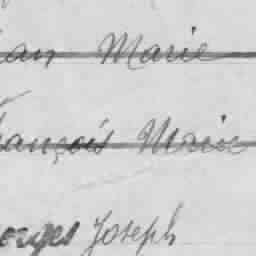 ean Marie
rançois Marie
orges Joseph